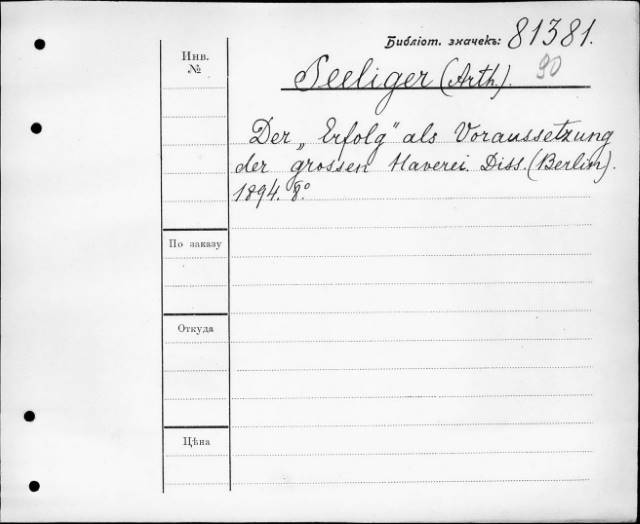 Библіот. значекъ: 81381.
Инв.
№
Seeliger (Arth). 90
Der „Erfolg" als Voraussetzung
der grossen Haverei. Diss. (Berlin).
1894. 8°.
По заказу
Откуда
Цѣна